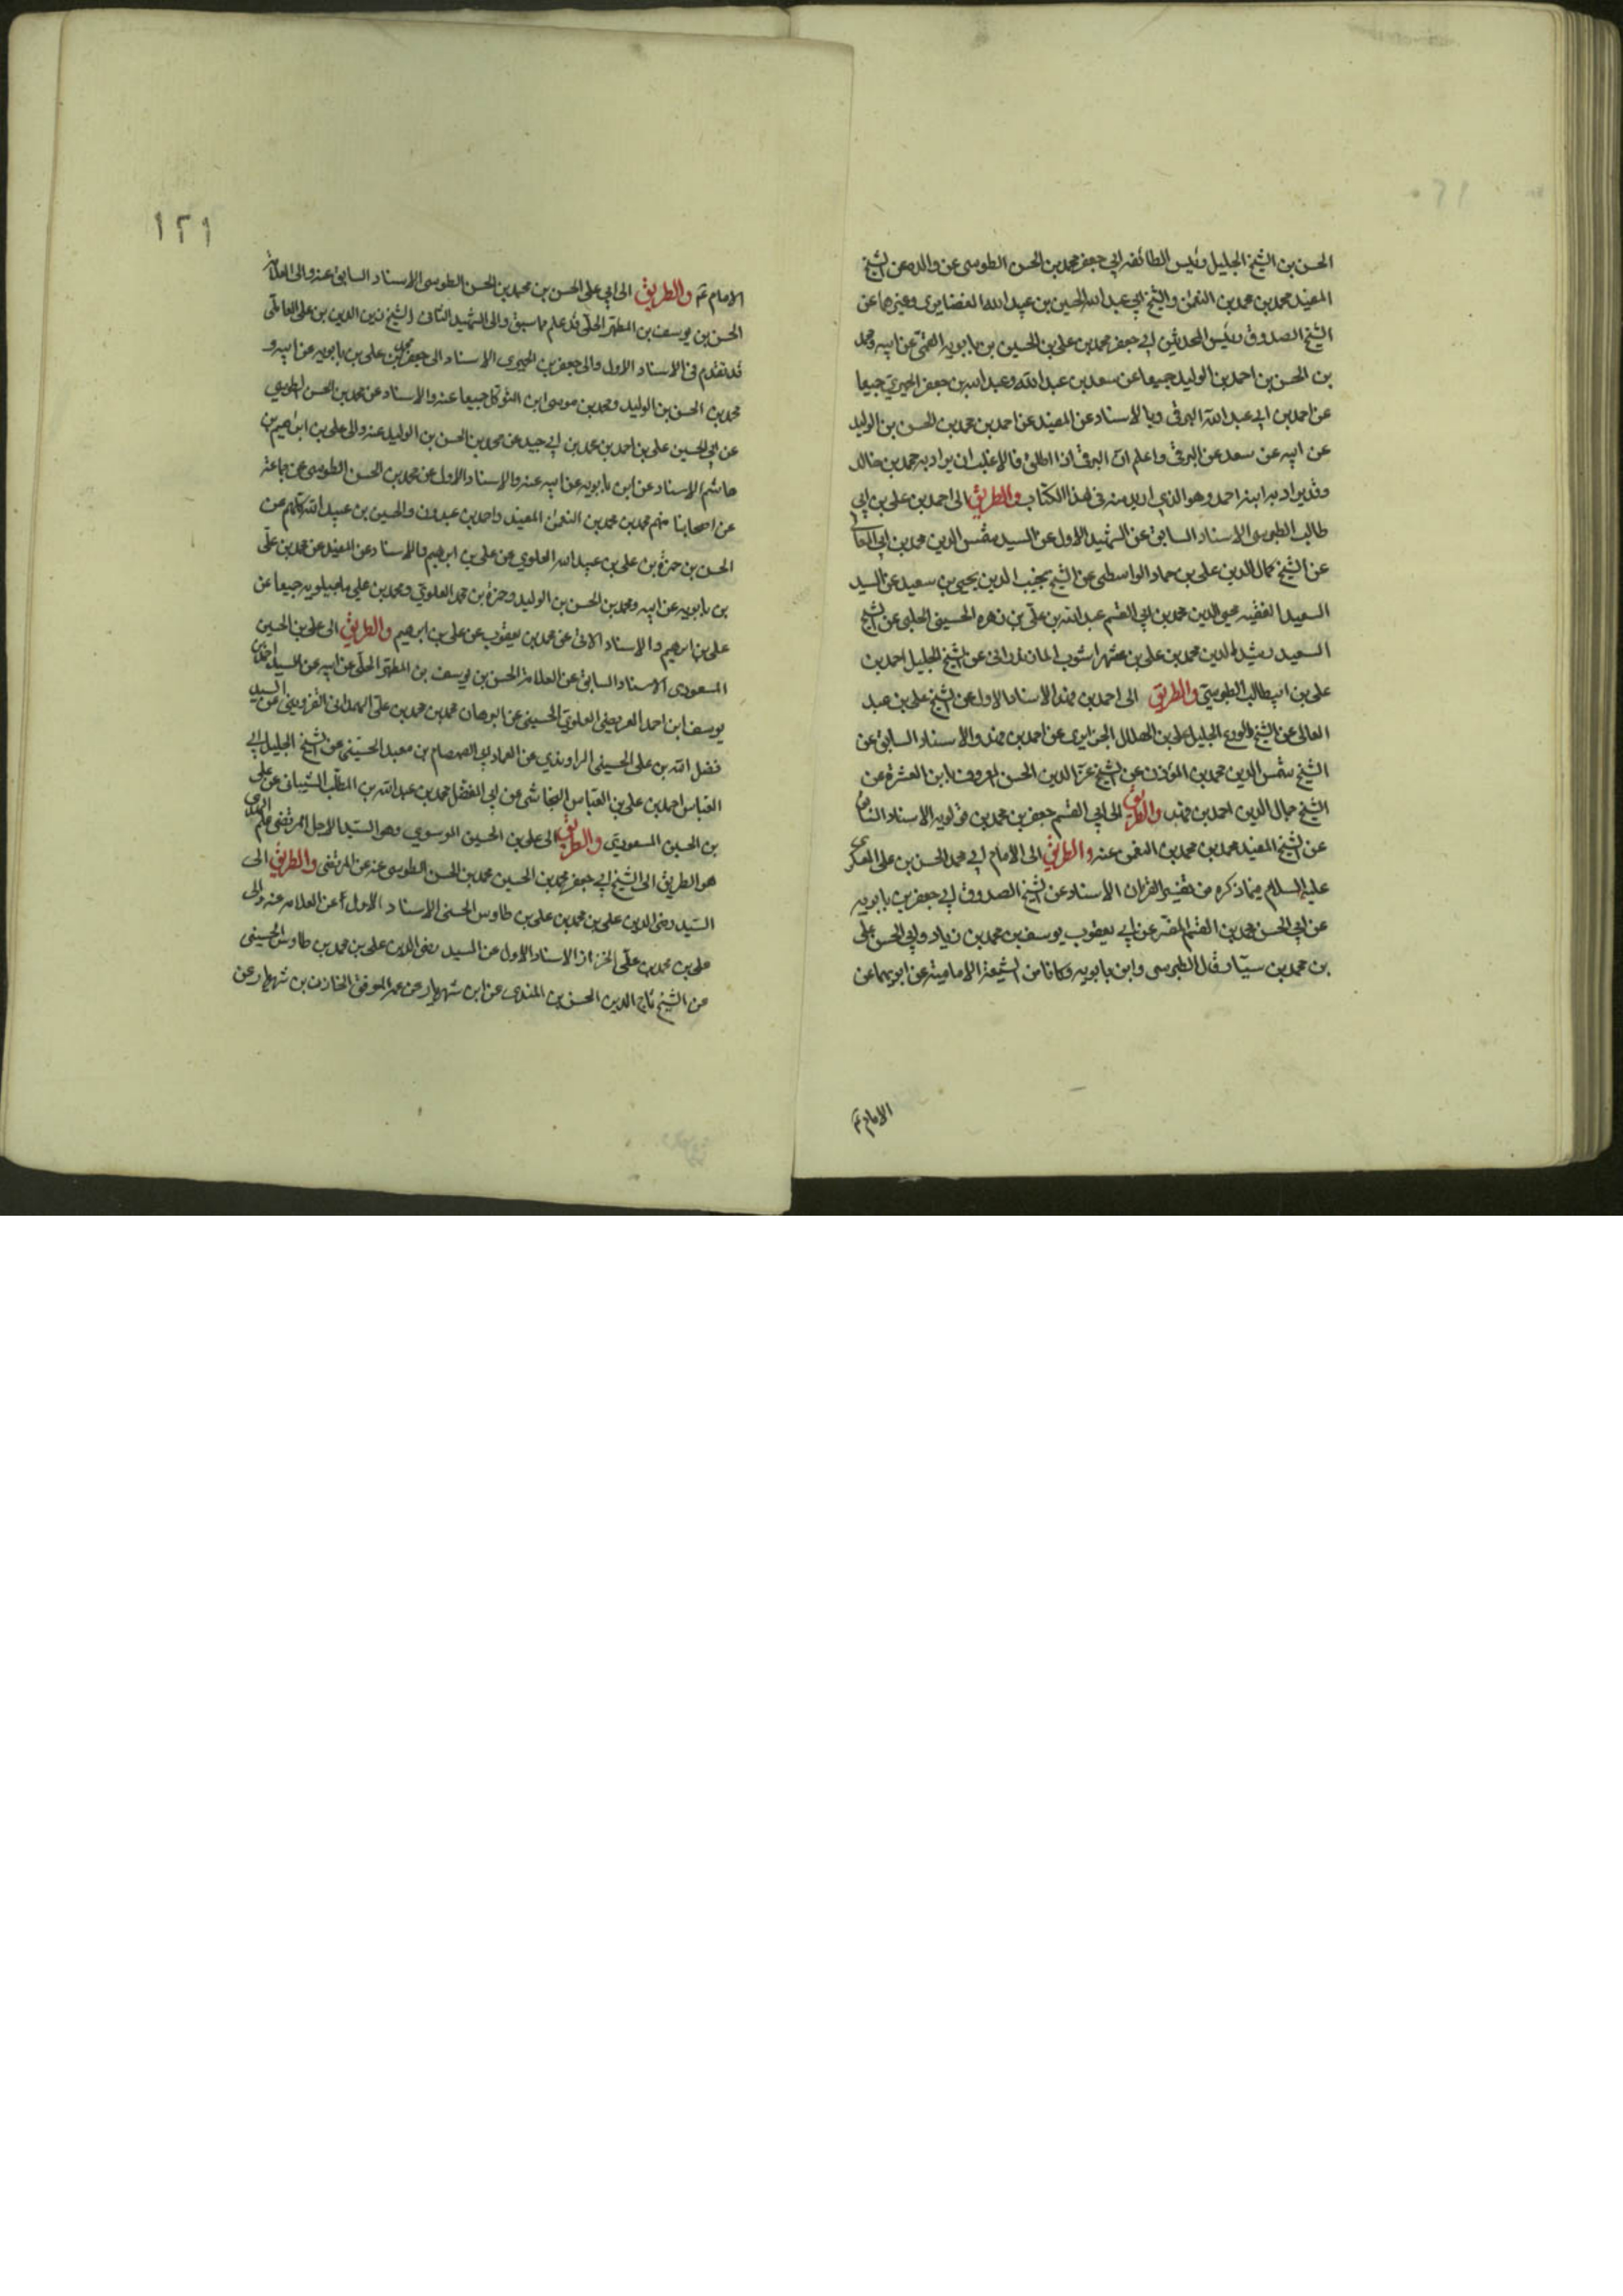 الحسن بن الشيخ الجليل رئيس الطائفه ابي جعفر محمد بن الحسن الطوسى عن والده عن الشيخ
المفيد محمد بن محمد بن النعمن والشيخ ابي عبد الله الحسين بن عبيد الله الغضايرى وغيرهما عن
الشيخ الصدوق رئيس المحدثين ابي جعفر محمد بن على بن الحسين بن بابويه القمى عن ابيه ومحمد
بن الحسن بن احمد بن الوليد جميعا عن سعد بن عبد الله وعبد الله بن جعفر الحميري جميعا
عن احمد بن ابي عبد الله البرقى وبالاسناد عن المفيد عن احمد بن محمد بن الحسن بن الوليد
عن ابيه عن سعد عن البرقى واعلم ان البرقى اذا اطلق فالاغلب ان يراد به محمد بن خالد
وقد يراد به ابنه احمد وهو الذي اريد منه فى هذا الكتاب والطريق الى احمد بن على بن ابي
طالب الطبرسى الاسناد السابق عن الشهيد الاول عن السيد شمس الدين محمد بن ابي المعالى
عن الشيخ كمال الدين على بن حماد الواسطى عن الشيخ نجيب الدين يحيى بن سعيد عن السيد
السعيد الفقيه محيى الدين محمد بن ابي القسم عبد الله بن على بن زهره الحسينى الحلبى عن الشيخ
السعيد رشيد الدين محمد بن على بن شهراشوب المازندرانى عن الشيخ الجليل احمد بن
على بن ابيطالب الطبرسي والطريق الى احمد بن فهد الاسناد الاول عن الشيخ على بن عبد
العالى عن الشيخ الورع الجليل على بن الهلال الجزايرى عن احمد بن فهد والاسناد السابق عن
الشيخ شمس الدين محمد بن المؤذن عن الشيخ عز الدين الحسن المعروف بابن العشرة عن
الشيخ جمال الدين احمد بن فهد والطريق الى ابي القسم جعفر بن محمد بن قولويه الاسناد الثانى
عن الشيخ المفيد محمد بن محمد بن النعمن عنه والطريق الى الامام ابي محمد الحسن بن على العسكرى
عليه السلام فيما ذكره من تفسير القران الاسناد عن الشيخ الصدوق ابي جعفر بن بابويه
عن ابي الحسن محمد بن القسم المفسر عن ابي يعقوب يوسف بن محمد بن زياد وابي الحسن على
بن محمد بن سيار قال الطبرسى وابن بابويه وكانا من الشيعة الامامية عن ابويهما عن
الامام ع
١٢١
الامام ع والطريق الى ابي على الحسن بن محمد بن الحسن الطوسى الاسناد السابق عنه والى العلامه
الحسن بن يوسف بن المطهر الحلى قد علم مما سبق والى الشهيد الثانى الشيخ زين الدين بن على العاملى
قد تقدم فى الاسناد الاول والى جعفر بن الحميرى الاسناد الى جعفر محمد بن على بن بابويه عن ابيه و
محمد بن الحسن بن الوليد ومحمد بن موسى ابن المتوكل جميعا عنه والاسناد عن محمد بن الحسن الطوسي
عن ابي الحسين على بن احمد بن محمد بن ابي جيد عن محمد بن الحسن بن الوليد عنه والى على بن ابرهيم بن
هاشم الاسناد عن ابن بابويه عن ابيه عنه والاسناد الاول عن محمد بن الحسن الطوسى عن جماعة
عن اصحابنا منهم محمد بن محمد بن النعمن المفيد واحمد بن عبدون والحسين بن عبيد الله كلهم عن
الحسن بن حمزة بن على بن عبيد الله العلوي عن على بن ابرهيم والاسناد عن المفيد عن محمد بن على
بن بابويه عن ابيه ومحمد بن الحسن بن الوليد وحمزة بن محمد العلوي ومحمد بن علي ماجيلويه جميعا عن
على بن ابرهيم والاسناد الاتى عن محمد بن يعقوب عن على بن ابرهيم والطريق الى على بن الحسين
المسعودى الاسناد السابق عن العلامة الحسن بن يوسف بن المطهر الحلى عن ابيه عن السيد احمد بن
يوسف ابن احمد العريضى العلوي الحسينى عن البرهان محمد بن محمد بن على الهمدانى القزوينى عن السيد
فضل الله بن على الحسينى الراوندي عن العماد ابي الصمصام بن معبد الحسينى عن الشيخ الجليل ابي
العباس احمد بن على بن العباس النجاشى عن ابي المفضل محمد بن عبد الله بن المطلب الشيبانى عن على
بن الحسين المسعودي والطريق الى على بن الحسين الموسوي وهو السيد الاجل المرتضى علم الهدى
هو الطريق الى الشيخ ابي جعفر محمد بن الحسين محمد بن الحسن الطوسى عنه عن المرتضى والطريق الى
السيد رضى الدين على بن محمد بن على بن طاوس الحسنى الاسناد الاول عن العلامه عنه والى
على بن محمد بن على الخزاز الاسناد الاول عن السيد رضى الدين على بن محمد بن طاوس الحسينى
عن الشيخ تاج الدين الحسن بن عن ابن شهريار عن عمه الموفق الخازن بن شهريار عن